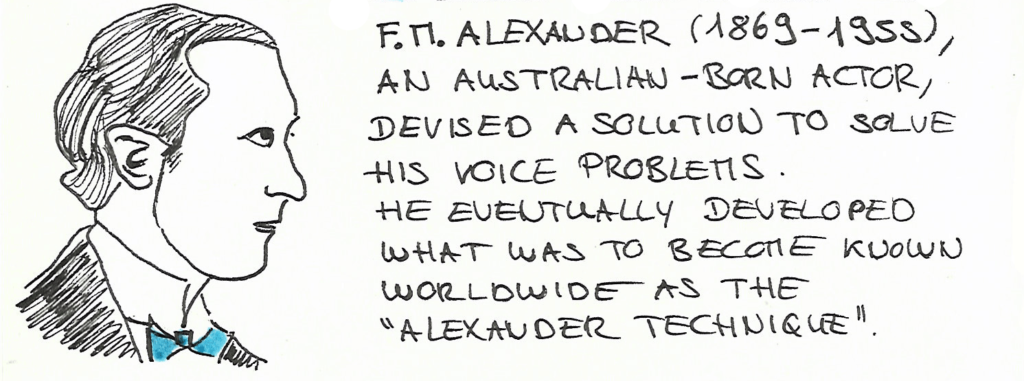 F.M. ALEXANDER (1869-1955),
AN AUSTRALIAN-BORN ACTOR,
DEVISED A SOLUTION TO SOLVE
HIS VOICE PROBLEMS.
HE EVENTUALLY DEVELOPED
WHAT WAS TO BECOME KNOWN
WORLDWIDE AS THE
"ALEXANDER TECHNIQUE".